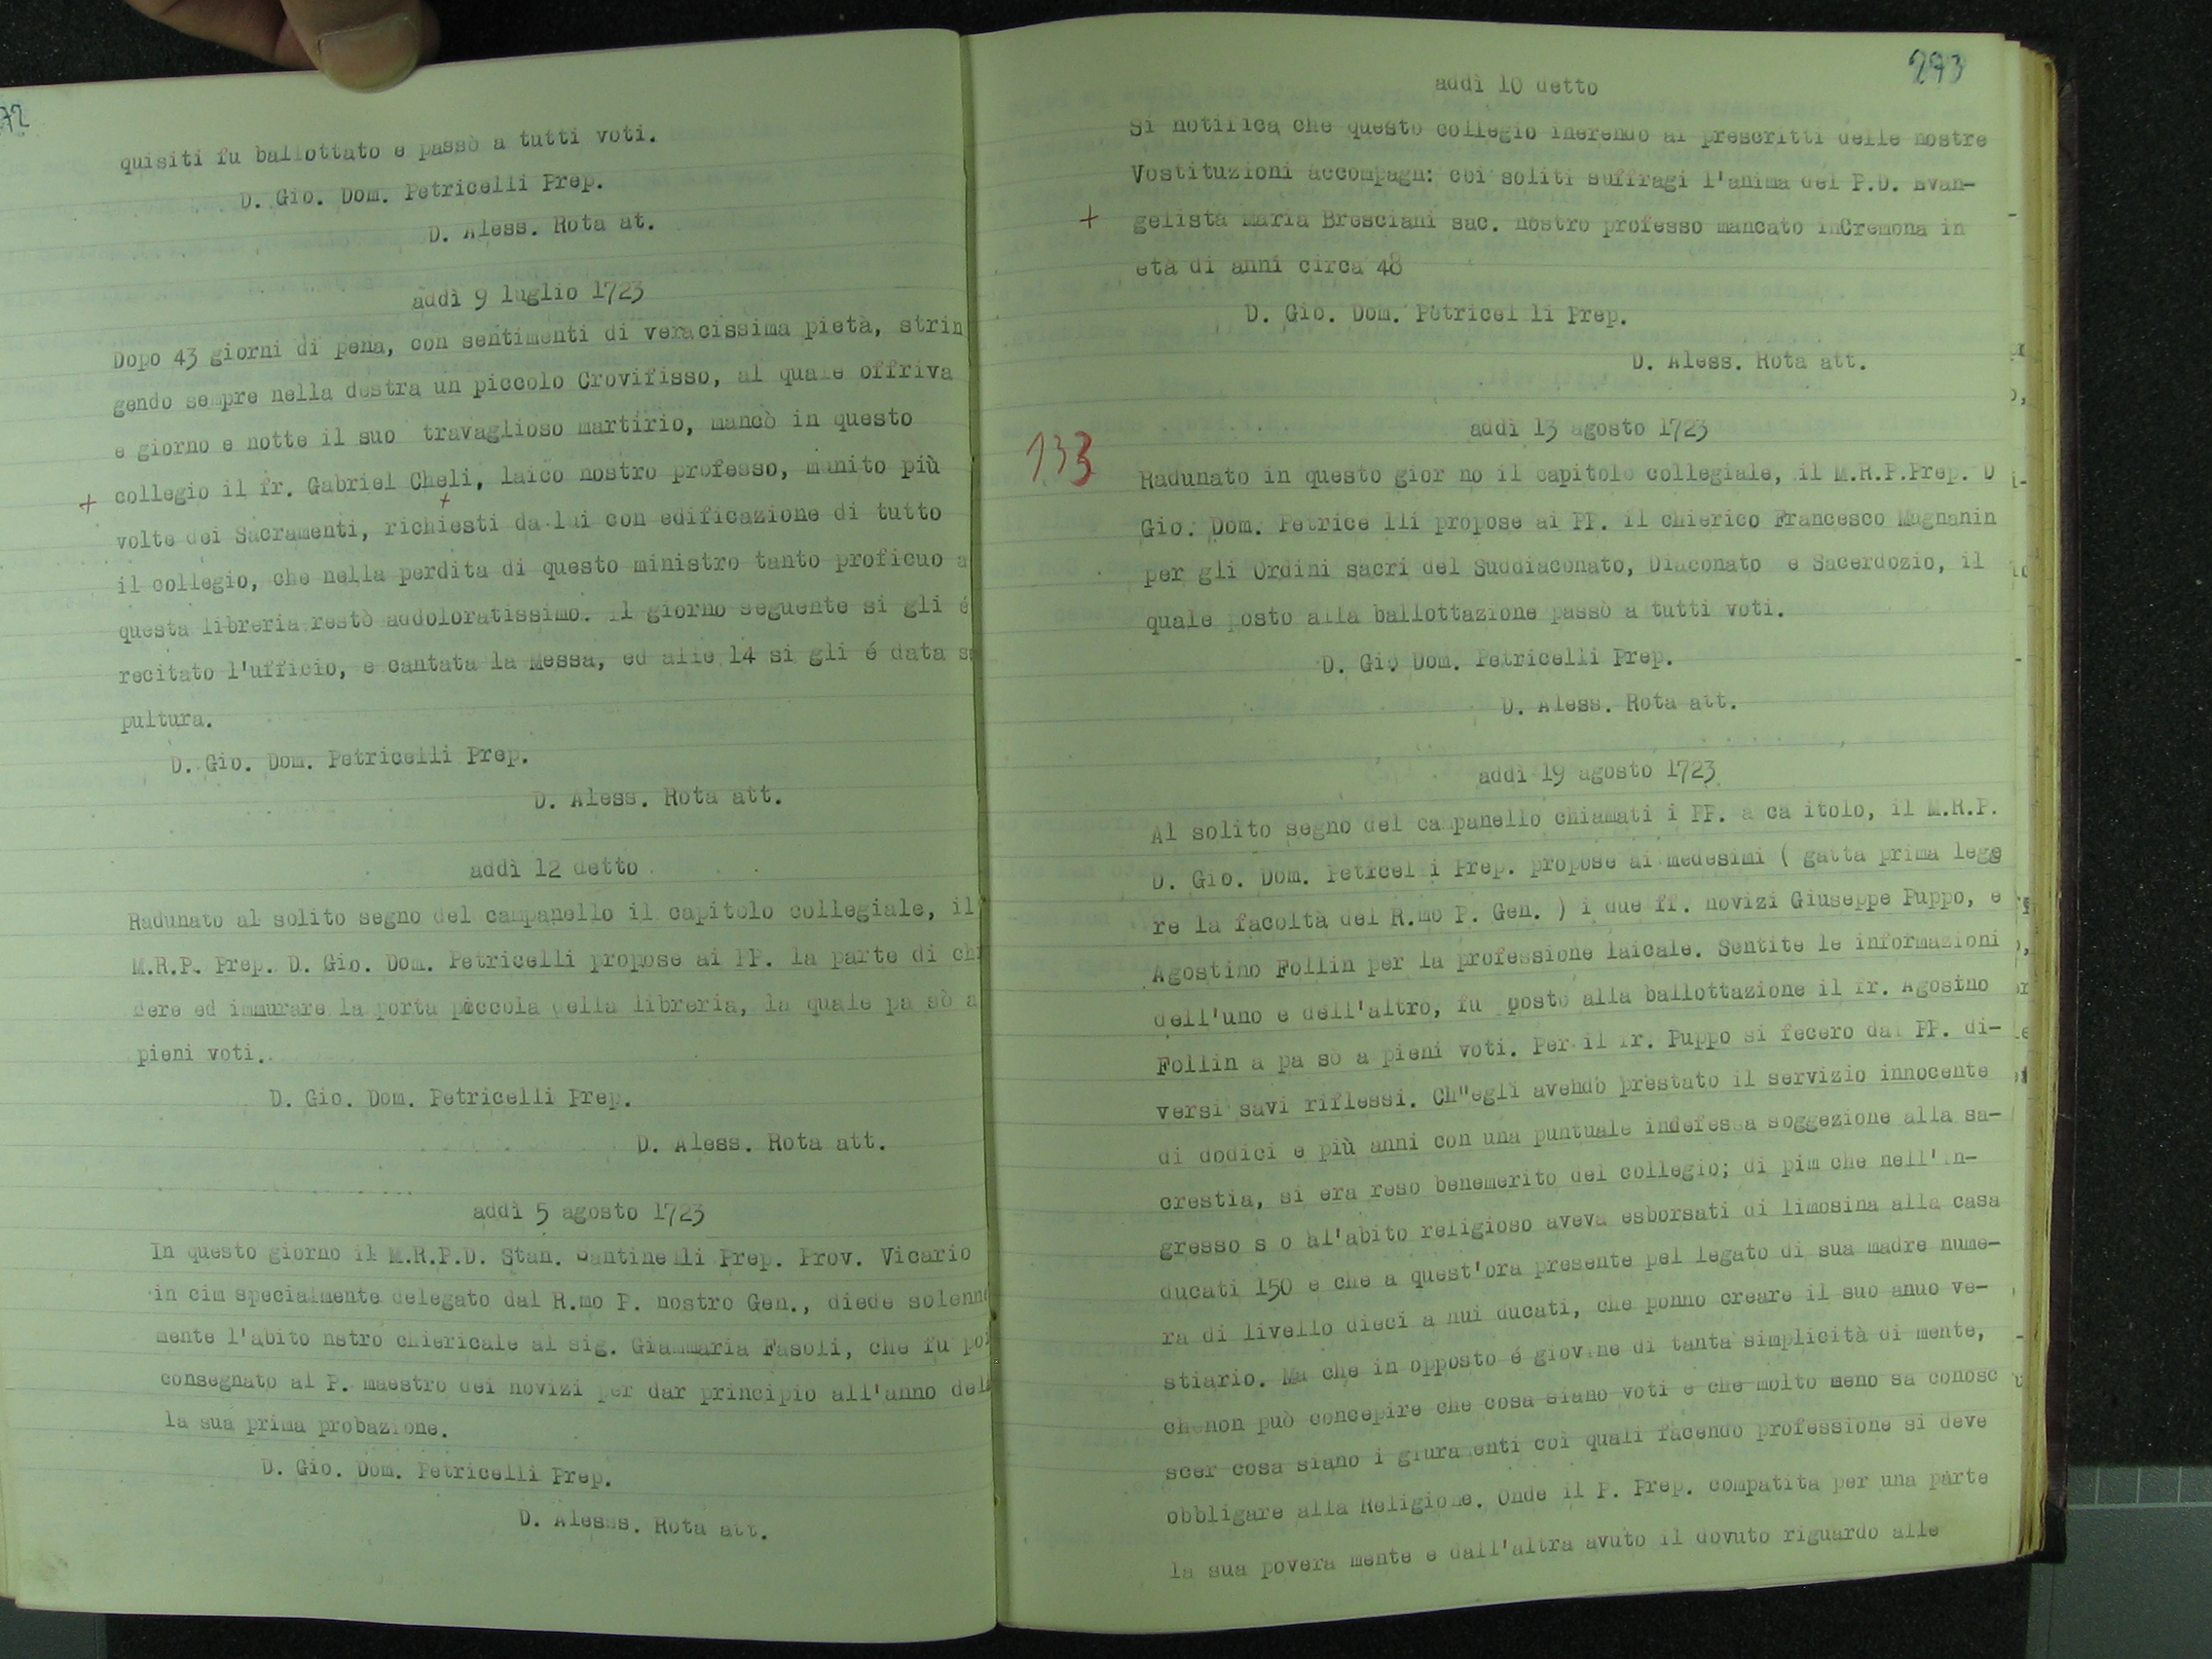 72
quisiti fu ballottato e passò a tutti voti.
D. Gio. Dom. Petricelli Prep.
D. Aless. Rota at.
addì 9 luglio 1723
Dopo 43 giorni di pena, con sentimenti di veracissima pietà, strin
gendo sempre nella destra un piccolo Crovifisso, al quale offriva
e giorno e notte il suo travaglioso martirio, mancò in questo
+ collegio il fr. Gabriel Cheli, laico nostro professo, munito più
+
volte dei Sacramenti, richiesti da lui con edificazione di tutto
il collegio, che nella perdita di questo ministro tanto proficuo a
questa libreria restò addoloratissimo. Il giorno seguente si gli é
recitato l'ufficio, e cantata la Messa, ed alle 14 si gli é data se
pultura.
D. Gio. Dom. Petricelli Prep.
D. Aless. Rota att.
addì 12 detto
Radunato al solito segno del campanello il capitolo collegiale, il
M.R.P. Prep. D. Gio. Dom. Petricelli propose ai PP. la parte di chi
dere ed immurare la porta piccola della libreria, la quale pa sò a
pieni voti.
D. Gio. Dom. Petricelli Prep.
D. Aless. Rota att.
addì 5 agosto 1723
In questo giorno il M.R.P.D. Stan. Santinelli Prep. Prov. Vicario
in cim specialmente delegato dal R.mo P. nostro Gen., diede solenne
mente l'abito nstro chiericale al sig. Giammaria Fasoli, che fu poi
consegnato al P. maestro dei novizi per dar principio all'anno del
la sua prima probazione.
D. Gio. Dom. Petricelli Prep.
D. Alesss. Rota att.
293
addì 10 detto
Si notifica che questo collegio inerendo ai prescritti delle nostre
Vostituzioni accompagn: coi soliti suffragi l'anima del P.D. Evan-
+ gelista Maria Bresciani sac. nostro professo mancato inCremona in
età di anni circa 48
D. Gio. Dom. Petricel li Prep.
D. Aless. Rota att.
addì 13 agosto 1723
133
Radunato in questo gior no il capitolo collegiale, il M.R.P.Prep. D
Gio. Dom. Petrice lli propose ai PP. il chierico Francesco Magnanin
per gli Ordini sacri del Suddiaconato, Diaconato e Sacerdozio, il
quale posto alla ballottazione passò a tutti voti.
D. Gio Dom. Petricelli Prep.
D. Aless. Rota att.
addì 19 agosto 1723
Al solito segno del campanello chiamati i PP. a ca itolo, il M.R.P.
D. Gio. Dom. Peticel i Prep. propose ai medesimi ( gatta prima legge
re la facoltà del R.mo P. Gen. ) i due ff. novizi Giuseppe Puppo, e
Agostino Follin per la professione laicale. Sentite le informazioni
dell'uno e dell'altro, fu posto alla ballottazione il fr. Agosino
Follin a pa sò a pieni voti. Per il fr. Puppo si fecero dai PP. di-
versi savi riflessi. Ch"egli avendo prestato il servizio innocente
di dodici e più anni con una puntuale indefessa soggezione alla sa-
crestia, si era reso benemerito del collegio; di pim che nell'in-
gresso s o al'abito religioso aveva esborsati di limosina alla casa
ducati 150 e che a quest'ora presente pel legato di sua madre nume-
ra di livello dieci a nui ducati, che ponno creare il suo anuo ve-
stiario. Ma che in opposto é giovine di tanta simplicità di mente,
che non può concepire che cosa siano voti e che molto meno sa conosc
scer cosa siano i giuramenti coi quali facendo professione si deve
obbligare alla Religione. Onde il P. Prep. compatita per una parte
la sua povera mente e dall'altra avuto il dovuto riguardo alle